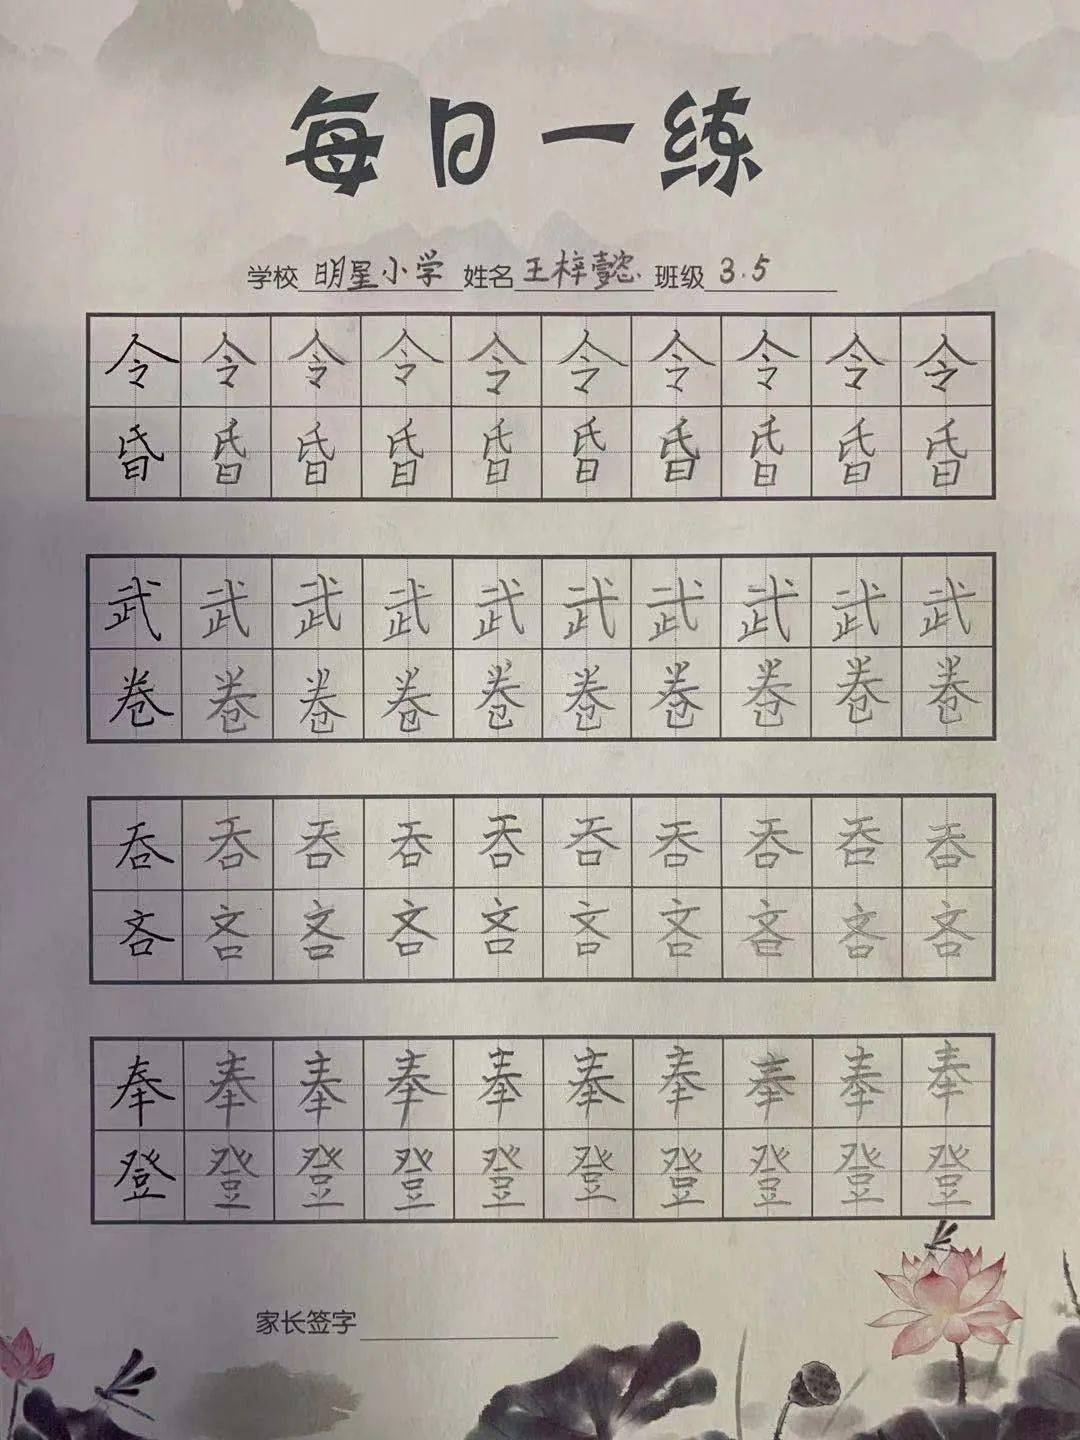 每日一练
学校 明星小学 姓名 王梓懿 班级 3.5
令令令令令令令令令令
昏昏昏昏昏昏昏昏昏昏
武武武武武武武武武武
卷卷卷卷卷卷卷卷卷卷
吞吞吞吞吞吞吞吞吞吞
吝吝吝吝吝吝吝吝吝吝
奉奉奉奉奉奉奉奉奉奉
登登登登登登登登登登
家长签字